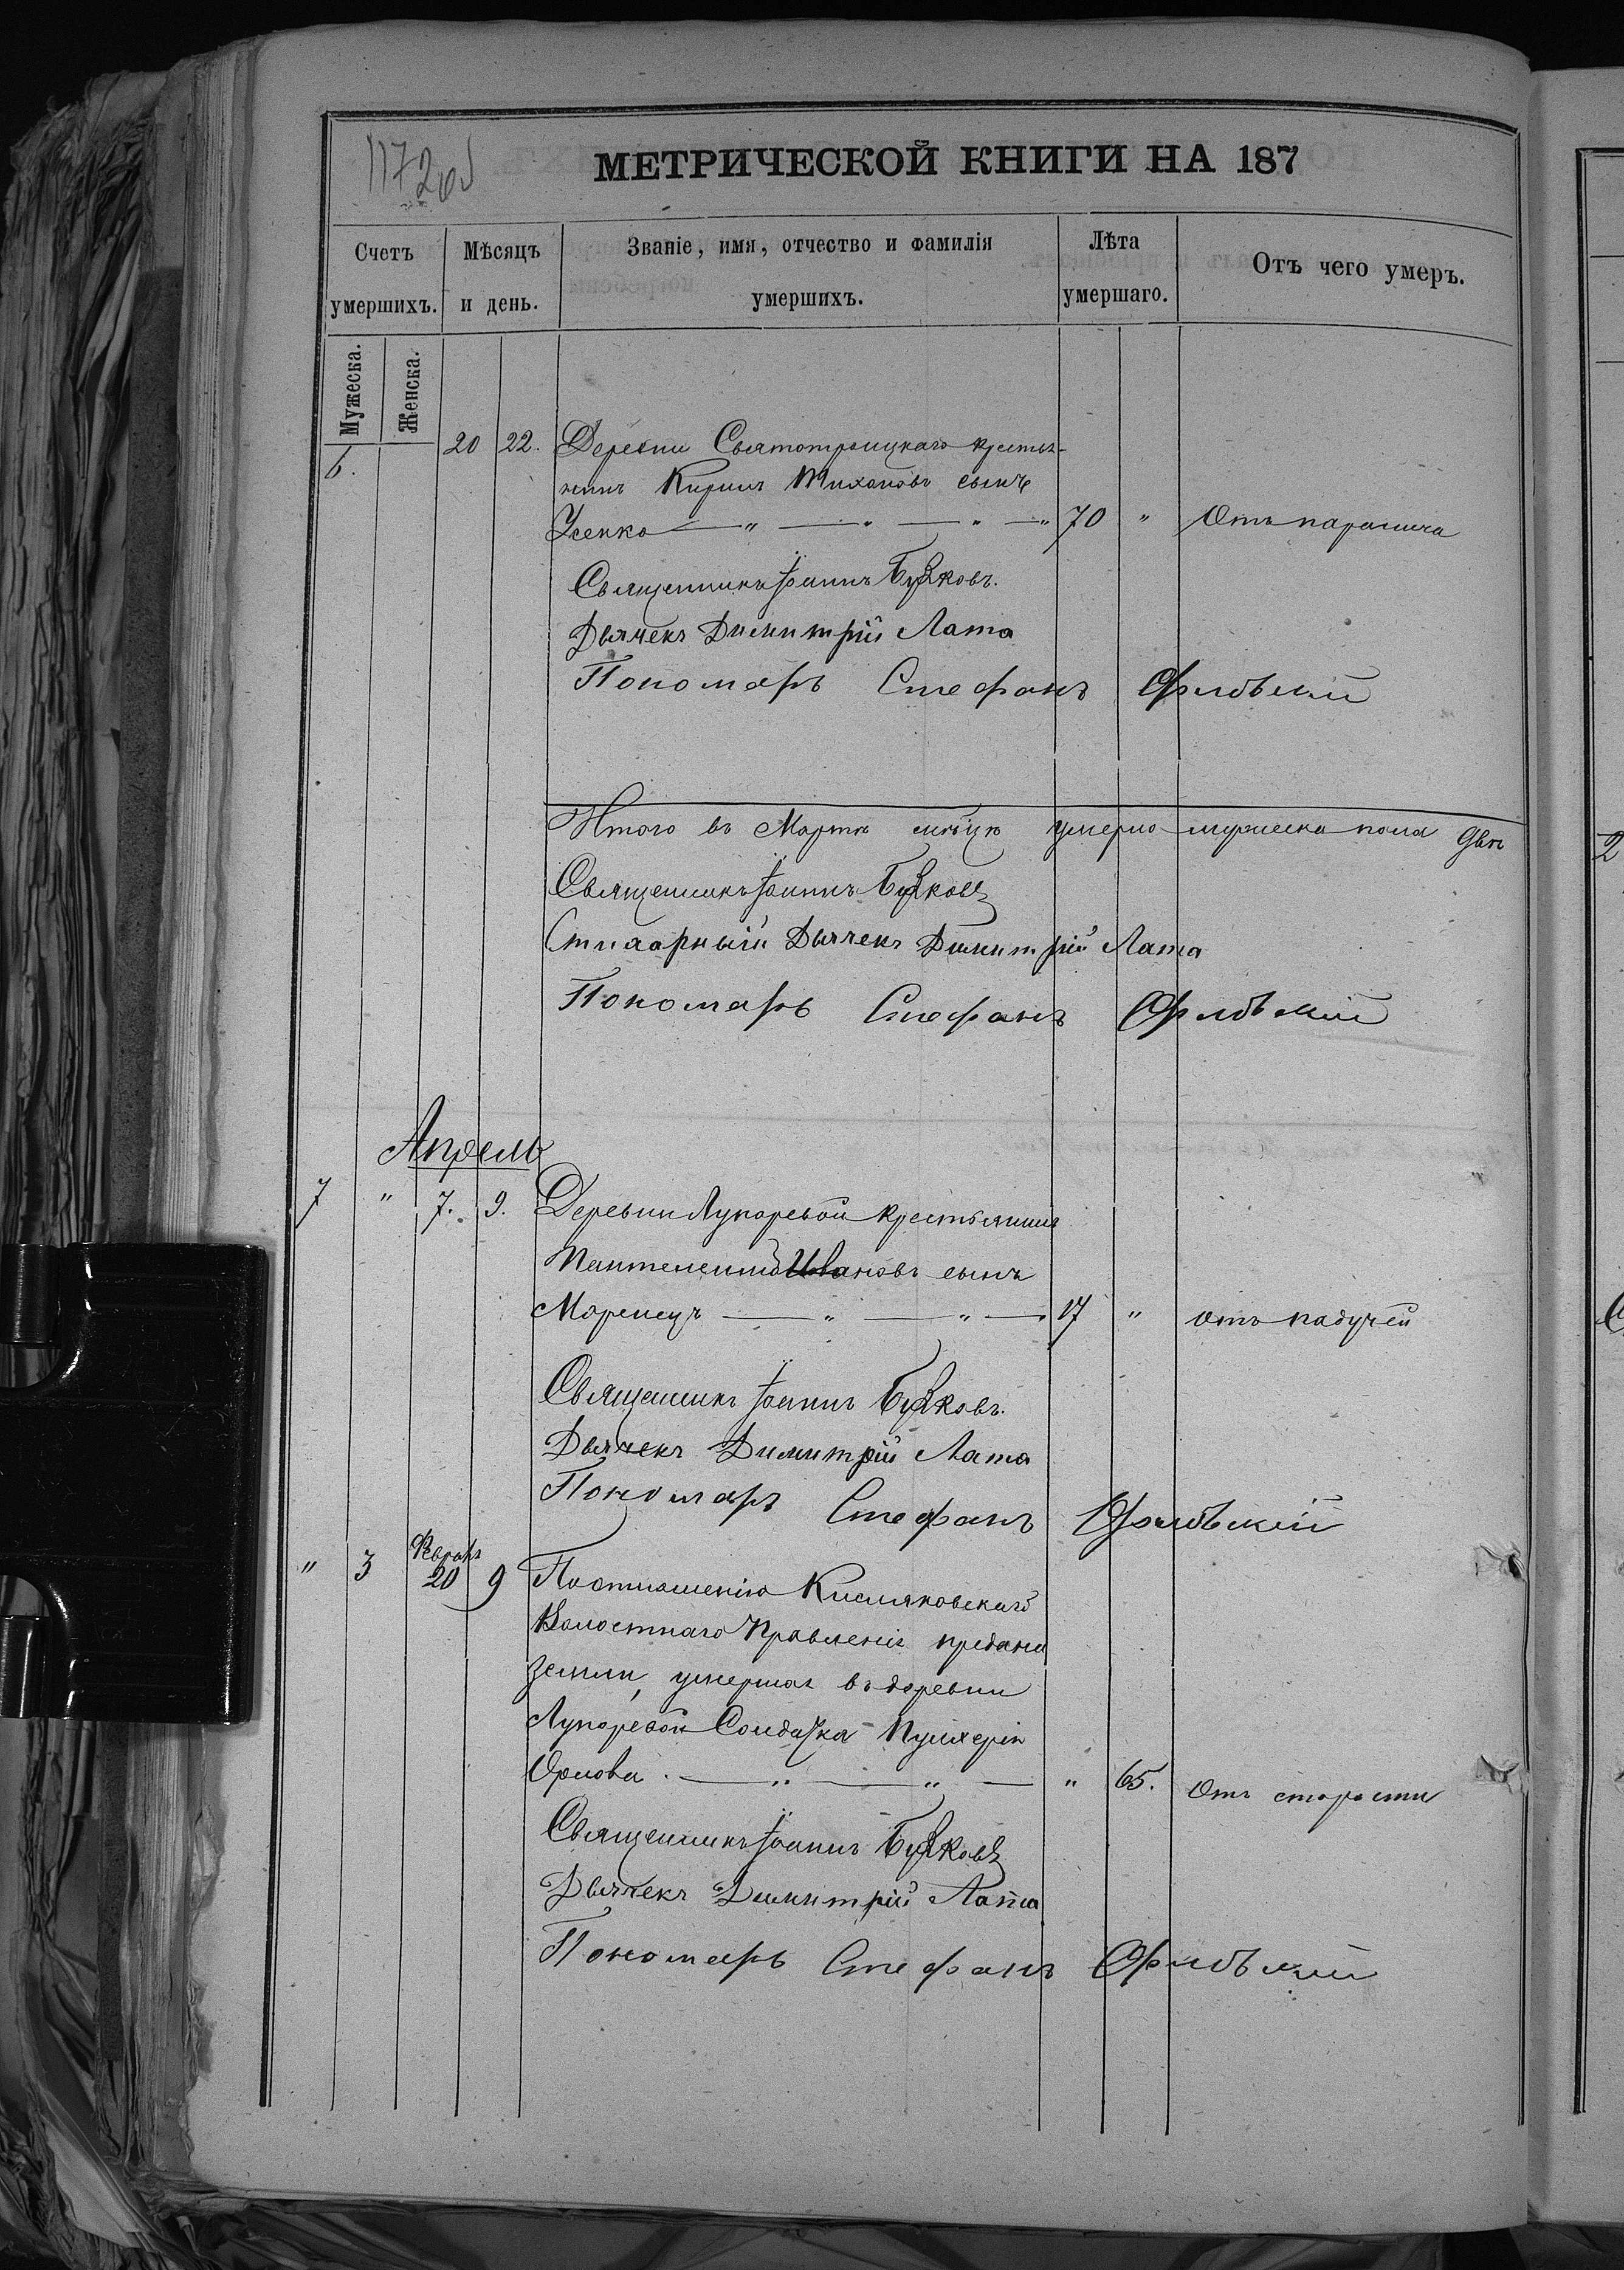 1172об
МЕТРИЧЕСКОЙ КНИГИ НА 187
Счетъ умершихъ.
Мѣсяцъ и день.
Званіе, имя, отчество и фамилія умершихъ.
Лѣта умершаго.
Отъ чего умеръ.
Мужеска.
Женска.
6. 20 22. Деревни Святотроицкаго крестья-
нинъ Кирилъ Тихоновъ сынъ
Усенко — " — " — " — " 70 " Отъ паралича
Священникъ Іоаннъ Бужковъ.
Дьячекъ Димитрій Лата
Пономарь Стефанъ Орловскій
Итого въ Мартѣ мѣсяцѣ умерло мужеска пола два
Священникъ Іоаннъ Бужковъ
Стихарный Дьячекъ Димитрій Лата
Пономарь Стефанъ Орловскій
Апрель
7 " 7. 9. Деревни Лупаревой крестьянинъ
Пантелеимонъ Ивановъ сынъ
Маренецъ — " — " — 17 " отъ падучей
Священникъ Іоаннъ Бужковъ.
Дьячекъ Димитрій Лата
Пономарь Стефанъ Орловскій
" 3 Февраля
20 9 По отношенію Кисляковскаго
Волостнаго Правленія предана
земли, умершая въ деревни
Лупаревой Солдатка Пулхерія
Орлова. — " — " — " 65. Отъ старости
Священникъ Іоаннъ Бужковъ
Дьячекъ Димитрій Лата
Пономарь Стефанъ Орловскій
2